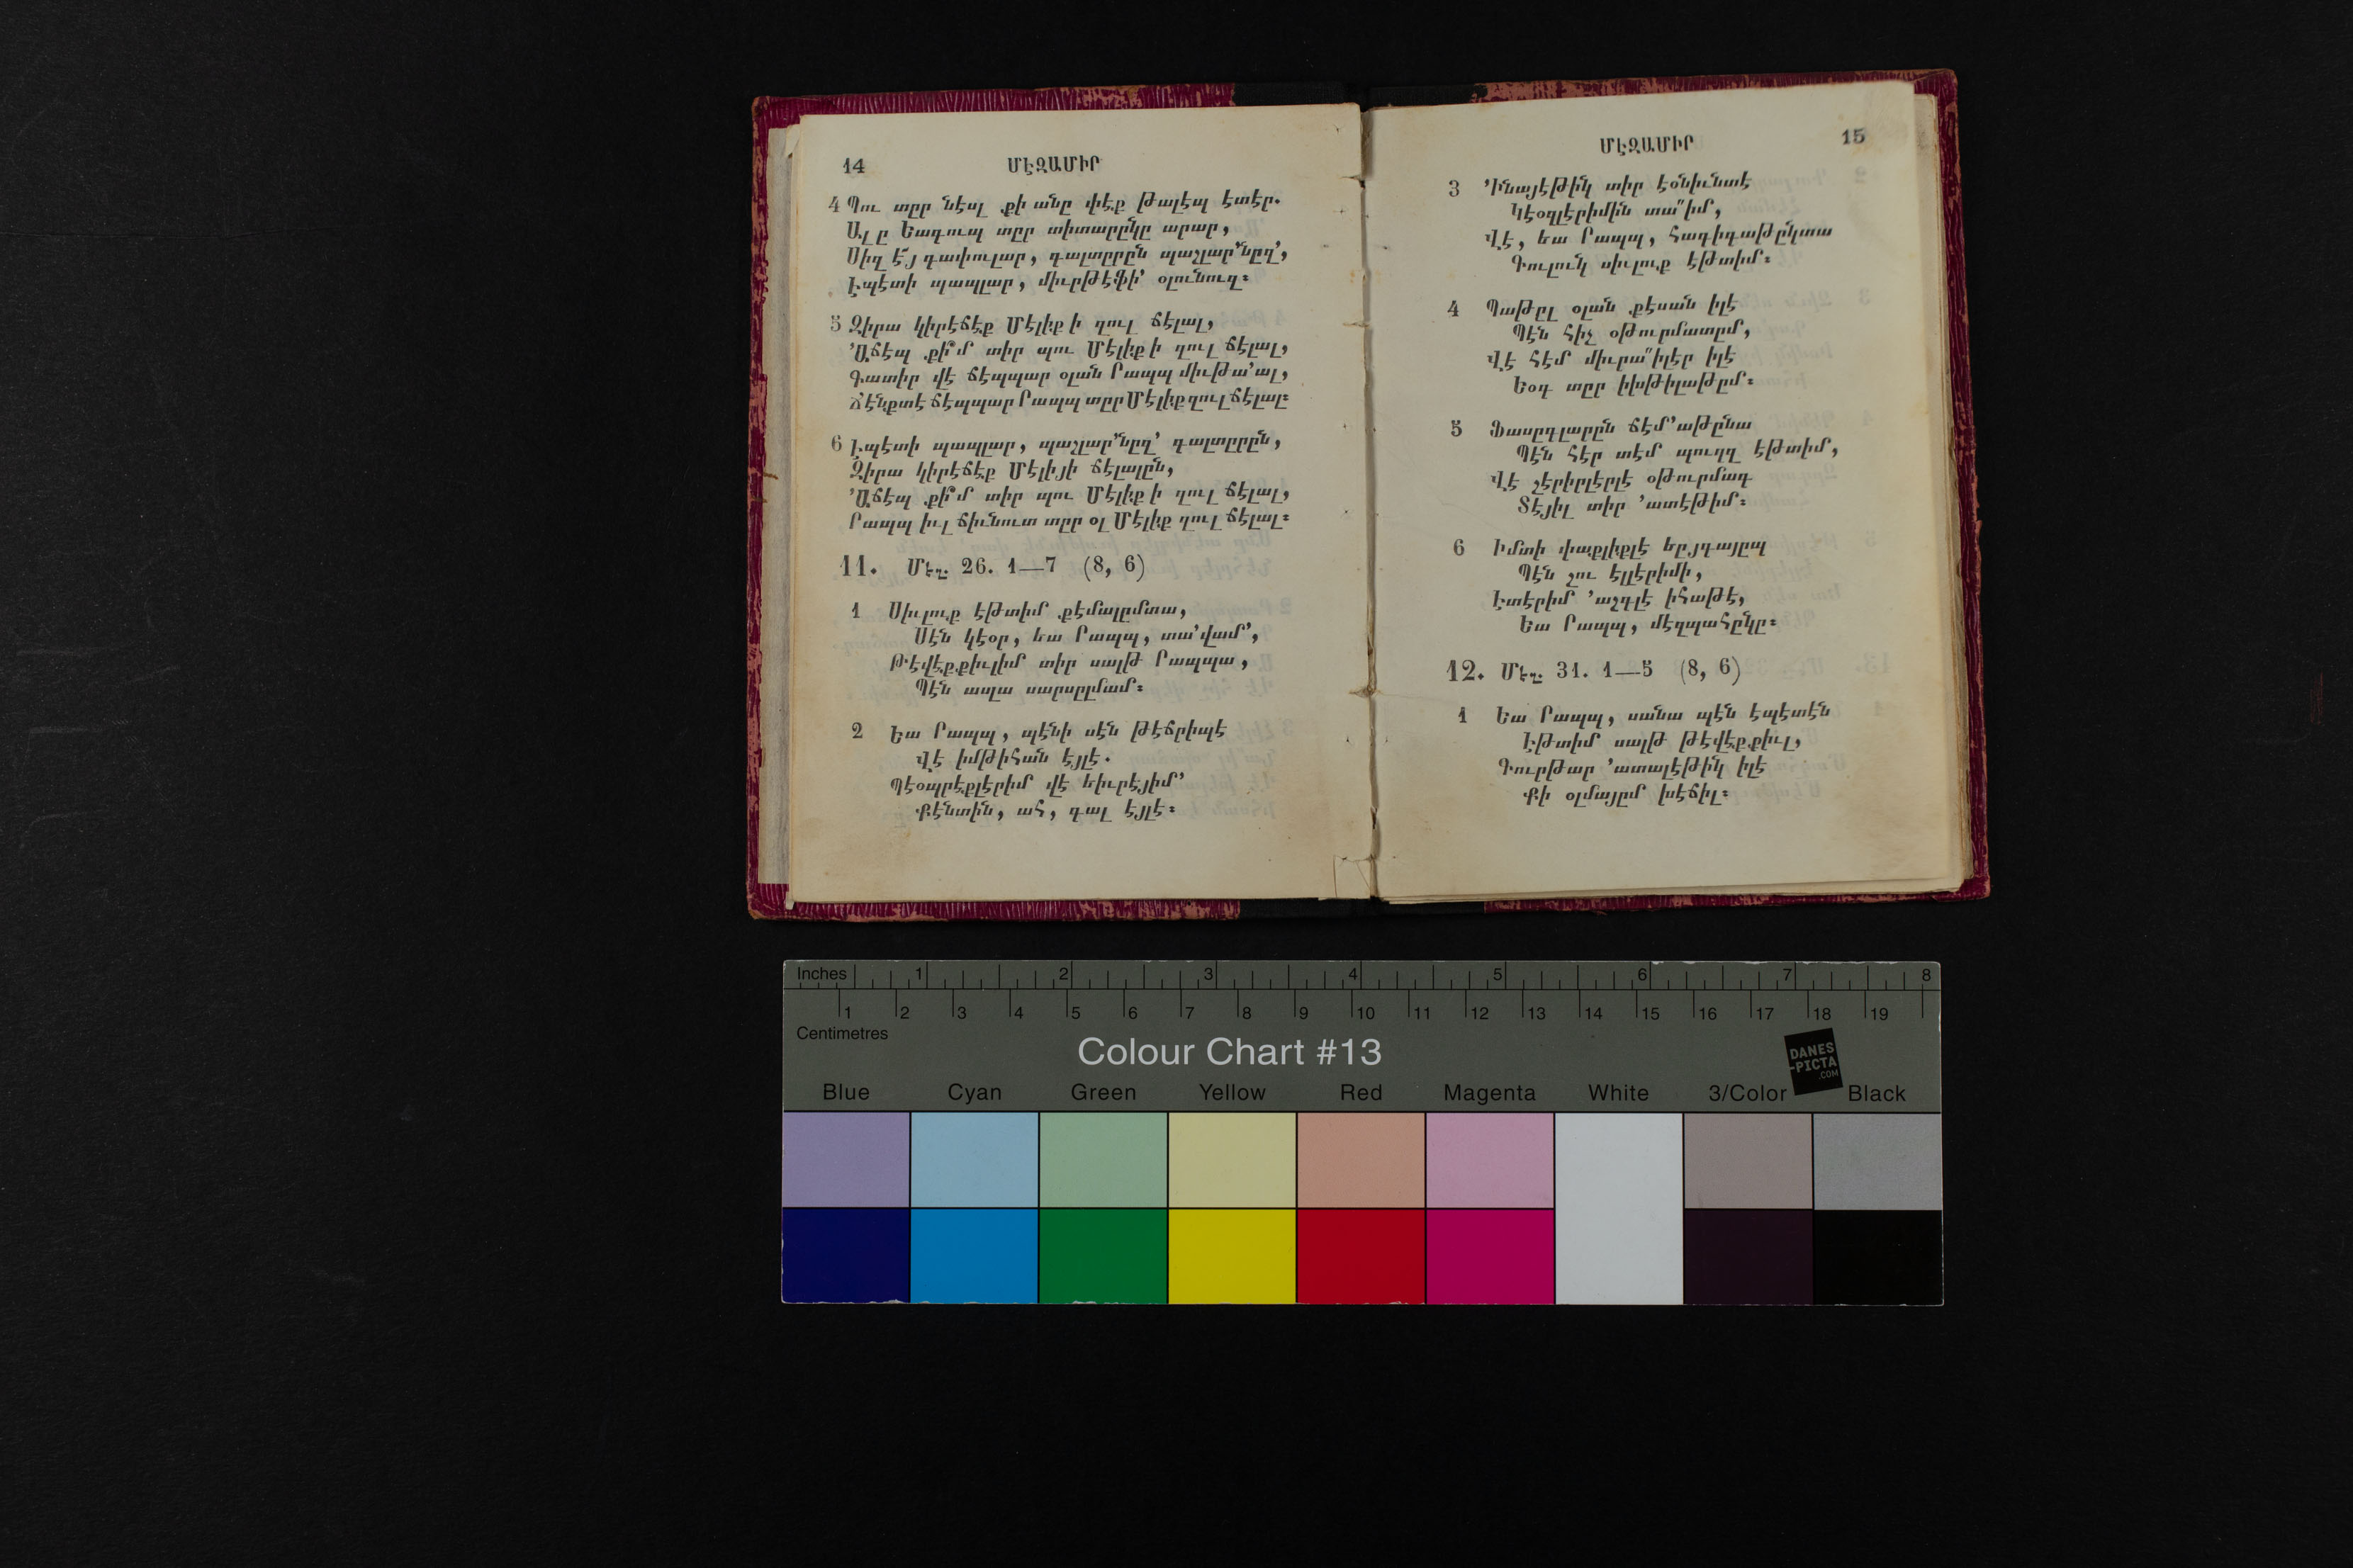 14 ՄԷԶԱՄԻՐ
4 Պու տըր նէսլ քի անը փէք թալէպ էտէր.
Ալ ը Եագուպ տըր տիտարընը արար,
Սիզ է՛յ գափուլար, գալտըրըն պաշլար՞նըզ՚,
Էպէտի պապլար, միւրթէֆի՚ օլունուզ։
5 Զիրա կիրէճէք Մէլիք ի զուլ ճէլալ,
՚Աճէպ քի՞մ տիր պու Մէլիք ի զուլ ճէլալ,
Գատիր վէ ճէպպար օլան Րապպ միւթա՚ալ,
Ճէնքտէ ճէպպար Րապպ տըր Մէլիք զուլ ճէլալ։
6 Էպէտի պապլար, պաշլար՞նըզ՚ գալտըրըն,
Զիրա կիրէճէք Մէլիյի ճէլալըն,
՚Աճէպ քի՞մ տիր պու Մէլիք ի զուլ ճէլալ,
Րապպ իւլ ճիւնուտ տըր օլ Մէլիք զուլ ճէլալ։
11. Մէզ. 26. 1—7 (8, 6)
1 Սիւլուք էթտիմ քէմալըմտա,
Սէն կէօր, եա Րապպ, տա՚վամ՚,
Թէվէքքիւլիմ տիր սալթ Րապպա,
Պէն ասլա սարսըլմամ։
2 Եա Րապպ, պէնի սէն թէճրիպէ
Վէ իմթիհան էյլէ.
Պէօպրէքլէրիմ վէ եիւրէյիմ՚
Քէնտին, ահ, գալ էյլէ։
ՄԷԶԱՄԻՐ 15
3 ՚Ինայէթին տիր էօնիւնտէ
Կէօզլէրիմին տա՞իմ,
Վէ, եա Րապպ, հագիգաթընտա
Գուլուն սիւլուք էթտիմ։
4 Պաթըլ օլան քէսան իլէ
Պէն հիչ օթուրմատըմ,
Վէ հէմ միւրա՞իլէր իլէ
Եօգ տըր իխթիլաթըմ։
5 Ֆասըգլարըն ճէմ՚աթընա
Պէն հէր տէմ պուղզ էթտիմ,
Վէ շէրիրլէրլէ օթուրմագ
Տէյիլ տիր ՚ատէթիմ։
6 Իմտի փաքլիքլէ եըյգայըպ
Պէն շու էլլէրիմի,
Էտէրիմ ՚աշգլէ իհաթէ,
Եա Րապպ, մէզպահընը։
12. Մէզ. 31. 1—5 (8, 6)
1 Եա Րապպ, սանա պէն էպէտէն
Էթտիմ սալթ թէվէքքիւլ,
Գուրթար ՚ատալէթին իլէ
Քի օլմայըմ խէճիլ։
Inches 1 2 3 4 5 6 7 8
1 2 3 4 5 6 7 8 9 10 11 12 13 14 15 16 17 18 19
Centimetres
Colour Chart #13
DANES
-PICTA
.COM
Blue Cyan Green Yellow Red Magenta White 3/Color Black